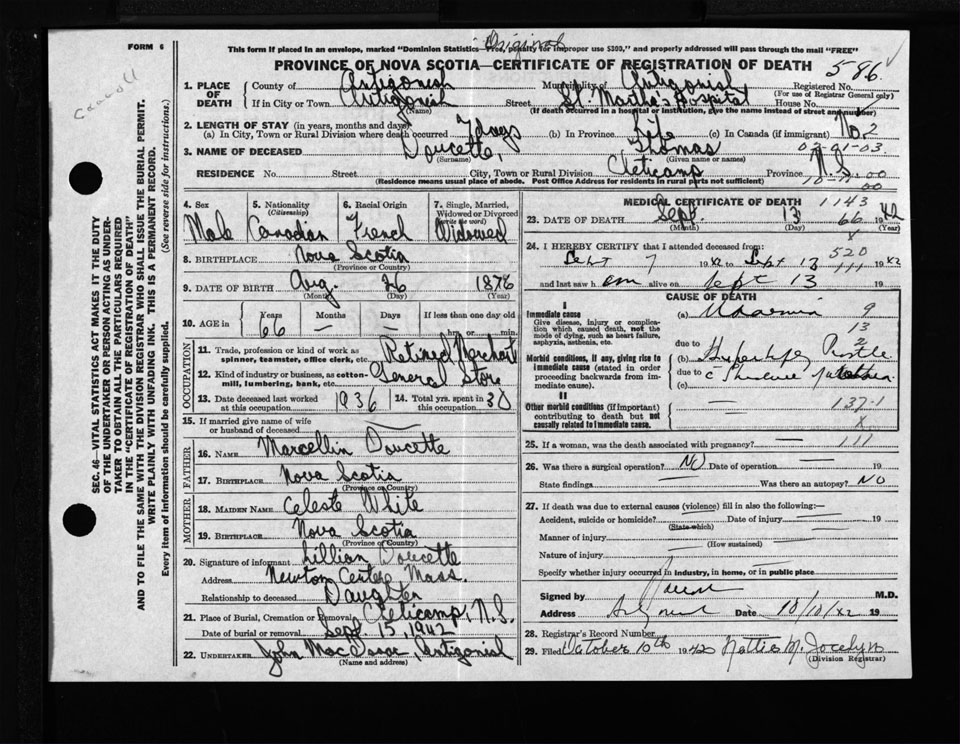 FORM 6
Original
This form if placed in an envelope, marked "Dominion Statistics—Free, penalty for improper use $300," and properly addressed will pass through the mail "FREE"
PROVINCE OF NOVA SCOTIA—CERTIFICATE OF REGISTRATION OF DEATH
586
1. PLACE OF DEATH County of Antigonish Municipality of Antigonish Registered No.
(For use of Registrar General only)
If in City or Town Antigonish Street St. Martha's Hospital House No.
(Name) (If death occurred in a hospital or institution, give the name instead of street and number)
2. LENGTH OF STAY (in years, months and days)
(a) In City, Town or Rural Division where death occurred 7 days (b) In Province Life (c) In Canada (if immigrant) No. 2
03-01-03.
3. NAME OF DECEASED Doucette, Thomas
(Surname) (Given name or names)
RESIDENCE No. Street City, Town or Rural Division Cheticamp Province N.S.
(Residence means usual place of abode. Post Office Address for residents in rural parts not sufficient)
4. Sex 5. Nationality (Citizenship) 6. Racial Origin 7. Single, Married, Widowed or Divorced (write the word)
Male Canadian French Widowed
8. BIRTHPLACE Nova Scotia
(Province or Country)
9. DATE OF BIRTH Aug. 26 1876
(Month) (Day) (Year)
10. AGE in Years Months Days If less than one day old
66 — — hr. or min.
OCCUPATION
11. Trade, profession or kind of work as spinner, teamster, office clerk, etc. Retired Merchant
12. Kind of industry or business, as cotton-mill, lumbering, bank, etc. General Store
13. Date deceased last worked at this occupation 1936 14. Total yrs. spent in this occupation 30
15. If married give name of wife or husband of deceased
FATHER
16. NAME Marcellin Doucette
17. BIRTHPLACE Nova Scotia
(Province or Country)
MOTHER
18. MAIDEN NAME Celeste White
19. BIRTHPLACE Nova Scotia
(Province or Country)
20. Signature of informant Lillian Doucette
Address Newton Centre Mass.
Relationship to deceased Daughter
21. Place of Burial, Cremation or Removal Cheticamp, N.S.
Date of burial or removal Sept. 15, 1942
22. UNDERTAKER John MacIsaac, Antigonish
(Name and address)
MEDICAL CERTIFICATE OF DEATH
1143
23. DATE OF DEATH Sept. 13 1942
(Month) (Day) (Year)
66
24. I HEREBY CERTIFY that I attended deceased from:
520
Sept 7 1942 to Sept 13 1942
and last saw h im alive on Sept 13 19
CAUSE OF DEATH
I
Immediate cause
Give disease, injury or complication which caused death, not the mode of dying, such as heart failure, asphyxia, asthenia, etc.
(a) Uraemia 9
13
due to
2
Morbid conditions, if any, giving rise to immediate cause (stated in order proceeding backwards from immediate cause).
(b)
due to
(c)
II
Other morbid conditions (if important) contributing to death but not causally related to immediate cause.
137-1
25. If a woman, was the death associated with pregnancy? — 111
26. Was there a surgical operation? NO Date of operation — 19
State findings Was there an autopsy? NO
27. If death was due to external causes (violence) fill in also the following:—
Accident, suicide or homicide? Date of injury 19
(State which)
Manner of injury
(How sustained)
Nature of injury
Specify whether injury occurred in industry, in home, or in public place
Signed by M.D.
Address Date 10/10/42 19
28. Registrar's Record Number
29. Filed October 10th 1942 Nettie M. Jocelyn
(Division Registrar)
SEC. 46—VITAL STATISTICS ACT MAKES IT THE DUTY OF THE UNDERTAKER OR PERSON ACTING AS UNDERTAKER TO OBTAIN ALL THE PARTICULARS REQUIRED IN THE "CERTIFICATE OF REGISTRATION OF DEATH" AND TO FILE THE SAME WITH THE DIVISION REGISTRAR WHO SHALL ISSUE THE BURIAL PERMIT.
WRITE PLAINLY WITH UNFADING INK. THIS IS A PERMANENT RECORD.
Every item of information should be carefully supplied. (See reverse side for instructions.)